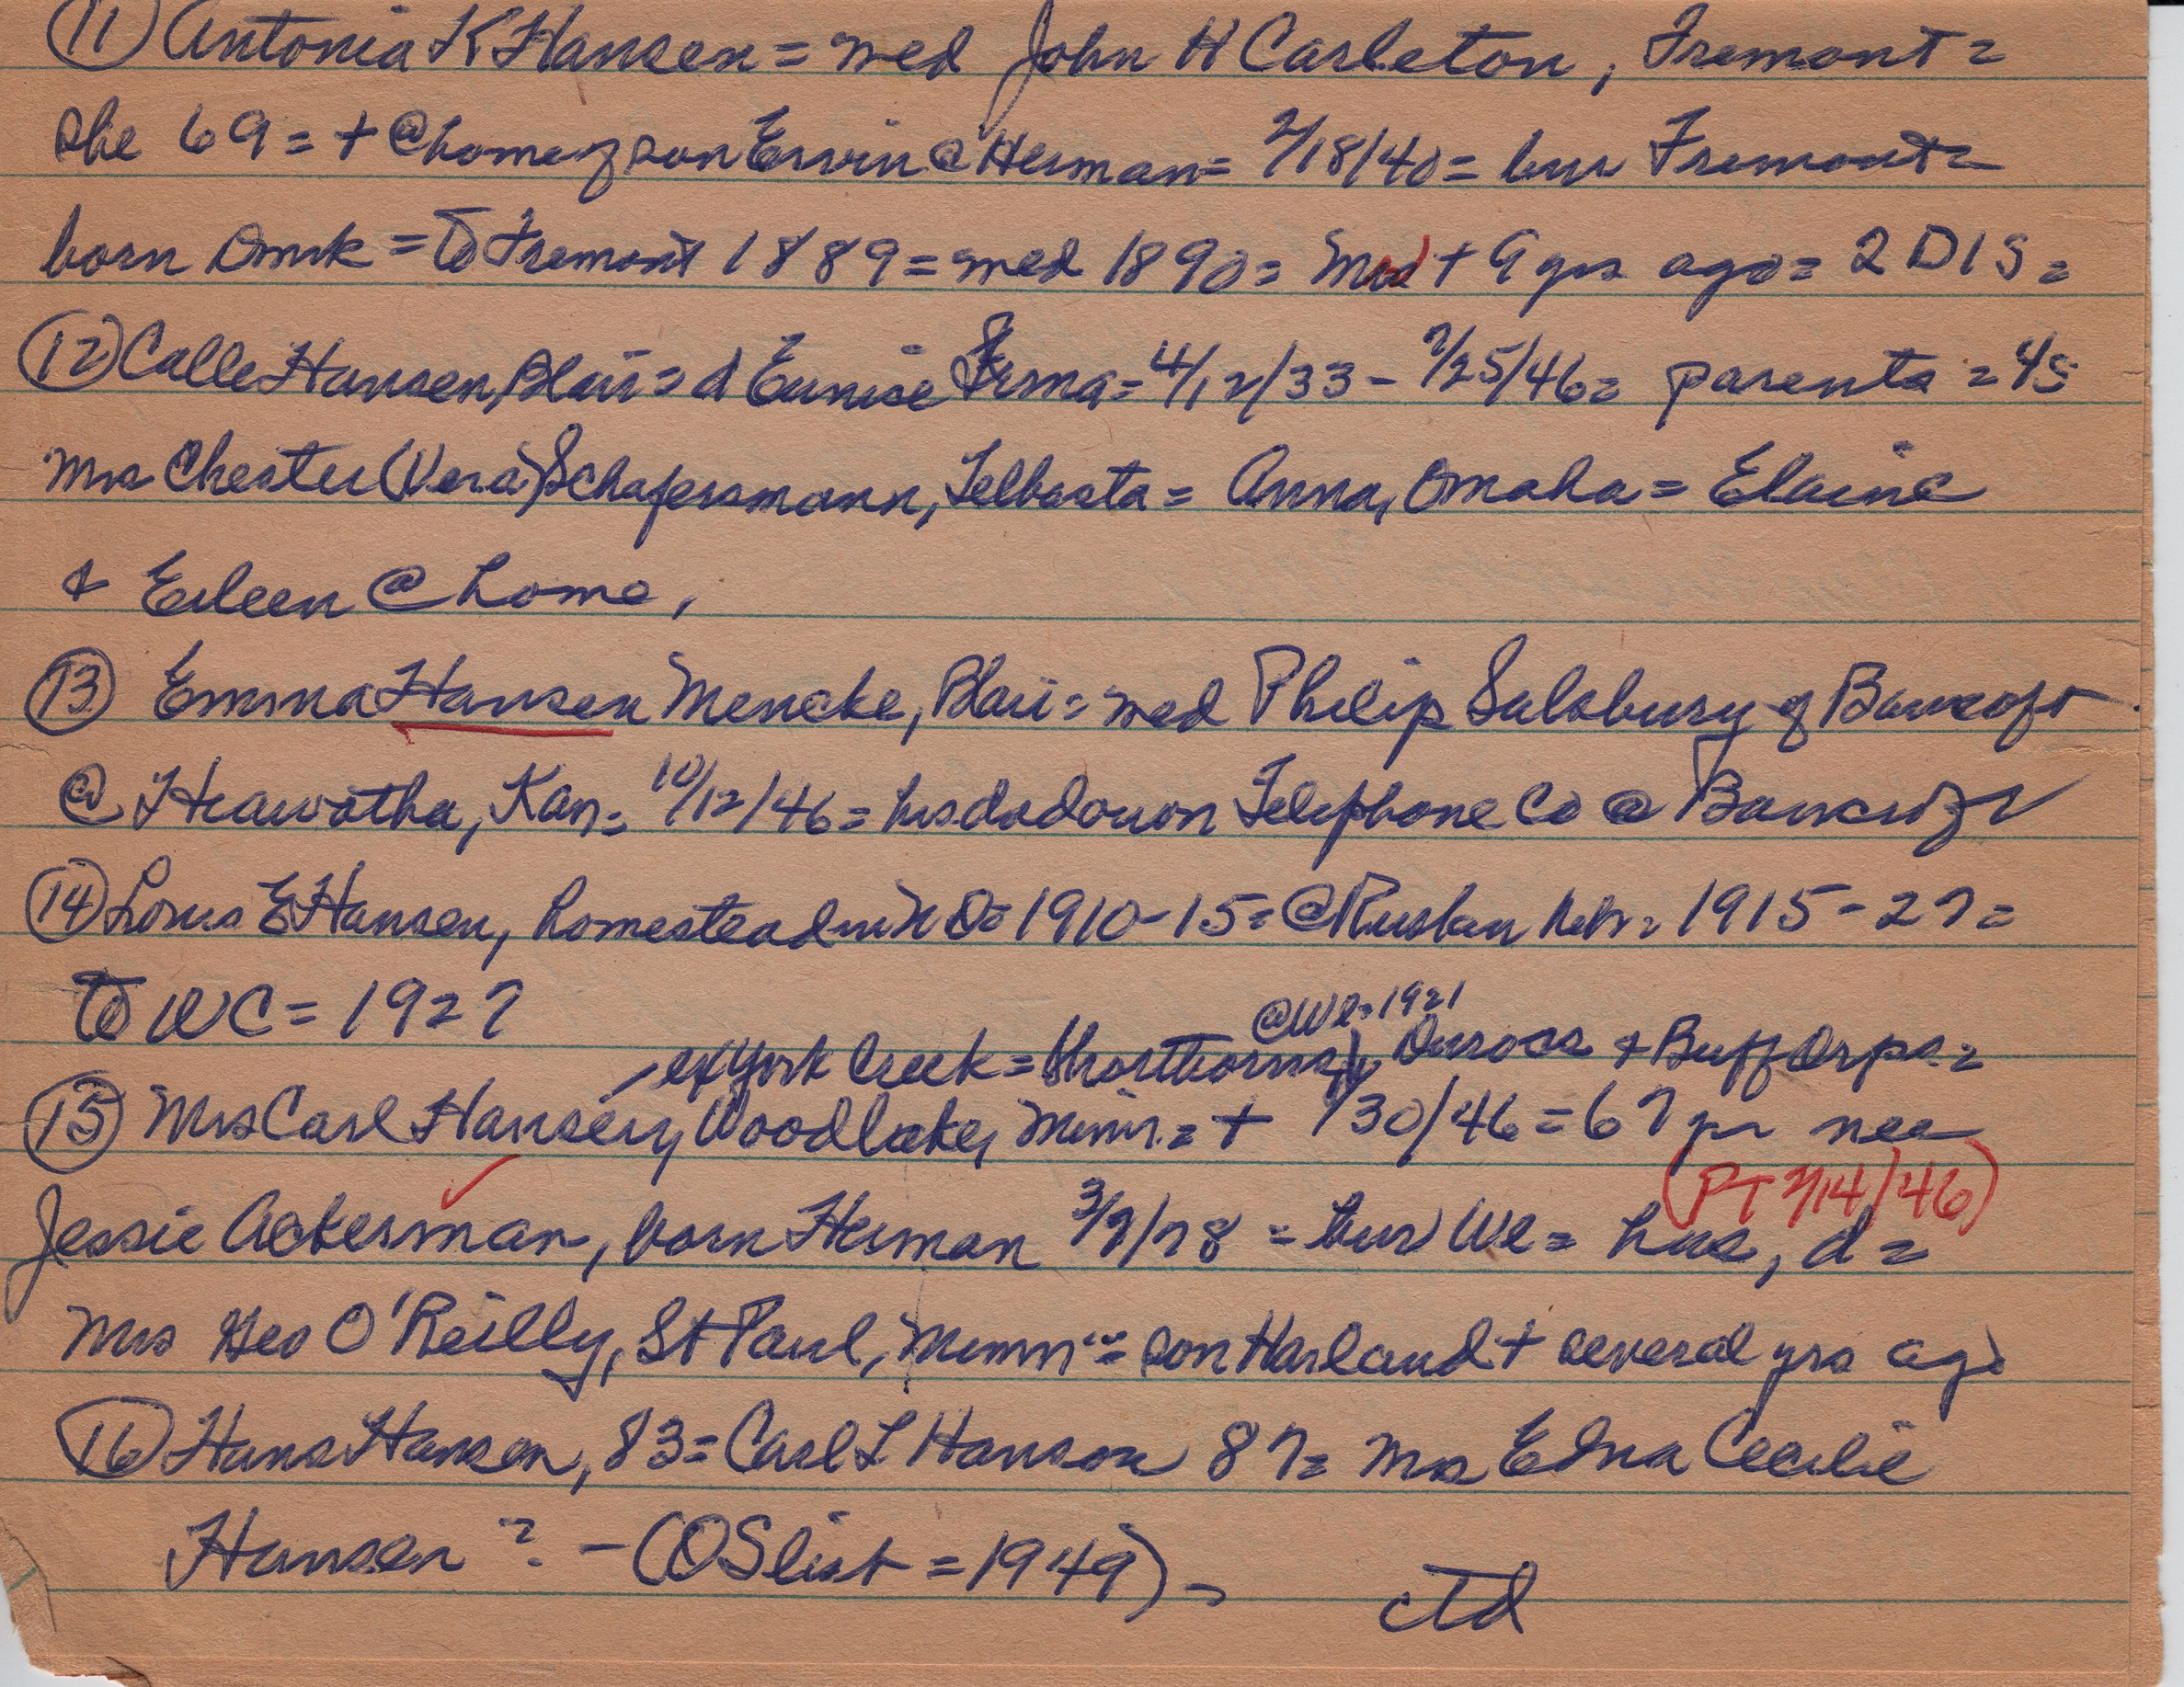 (11) Antonia K Hansen = wed John H Carleton, Fremont =
she 69 = + @ home of son Ervin @ Herman = 2/18/40 = bur Fremont =
born Dmk = to Fremont 1889 = wed 1890 = + 9 yrs ago = 2 D 1 S =
(12) Calle Hansen, Blair = d Eunise Irma = 4/12/33 - 7/25/46 = parents = 4S
Mrs Chester (Vera) Schafersmann, Telbasta = Anna, Omaha = Elaine
& Eileen @ home,
(13) Emma Hansen Mencke, Blair = wed Philip Salsbury of Bancroft
@ Hiawatha, Kan = 10/12/46 = his dad own Telephone Co @ Bancroft
(14) Louis E Hansen, homestead in N D = 1910-15 = @ Ruskin Nebr = 1915-27 =
to WC = 1927
@ Wl = 1921
ex York Creek = Shorthorns, Durocs & Buff Orps =
(15) Mrs Carl Hansen, Woodlake, Minn = + /30/46 = 67 yr nee
(PT 2/14/46)
Jessie Ackerman, born Herman 3/9/78 = bur Wl = hus, d =
Mrs Geo O'Reilly, St Paul, Minn = son Harland + several yrs ago
(16) Hans Hansen, 83 = Carl L Hanson 87 = Mrs Edna Cecilie
Hansen ? - (OS list = 1949) =
ctd